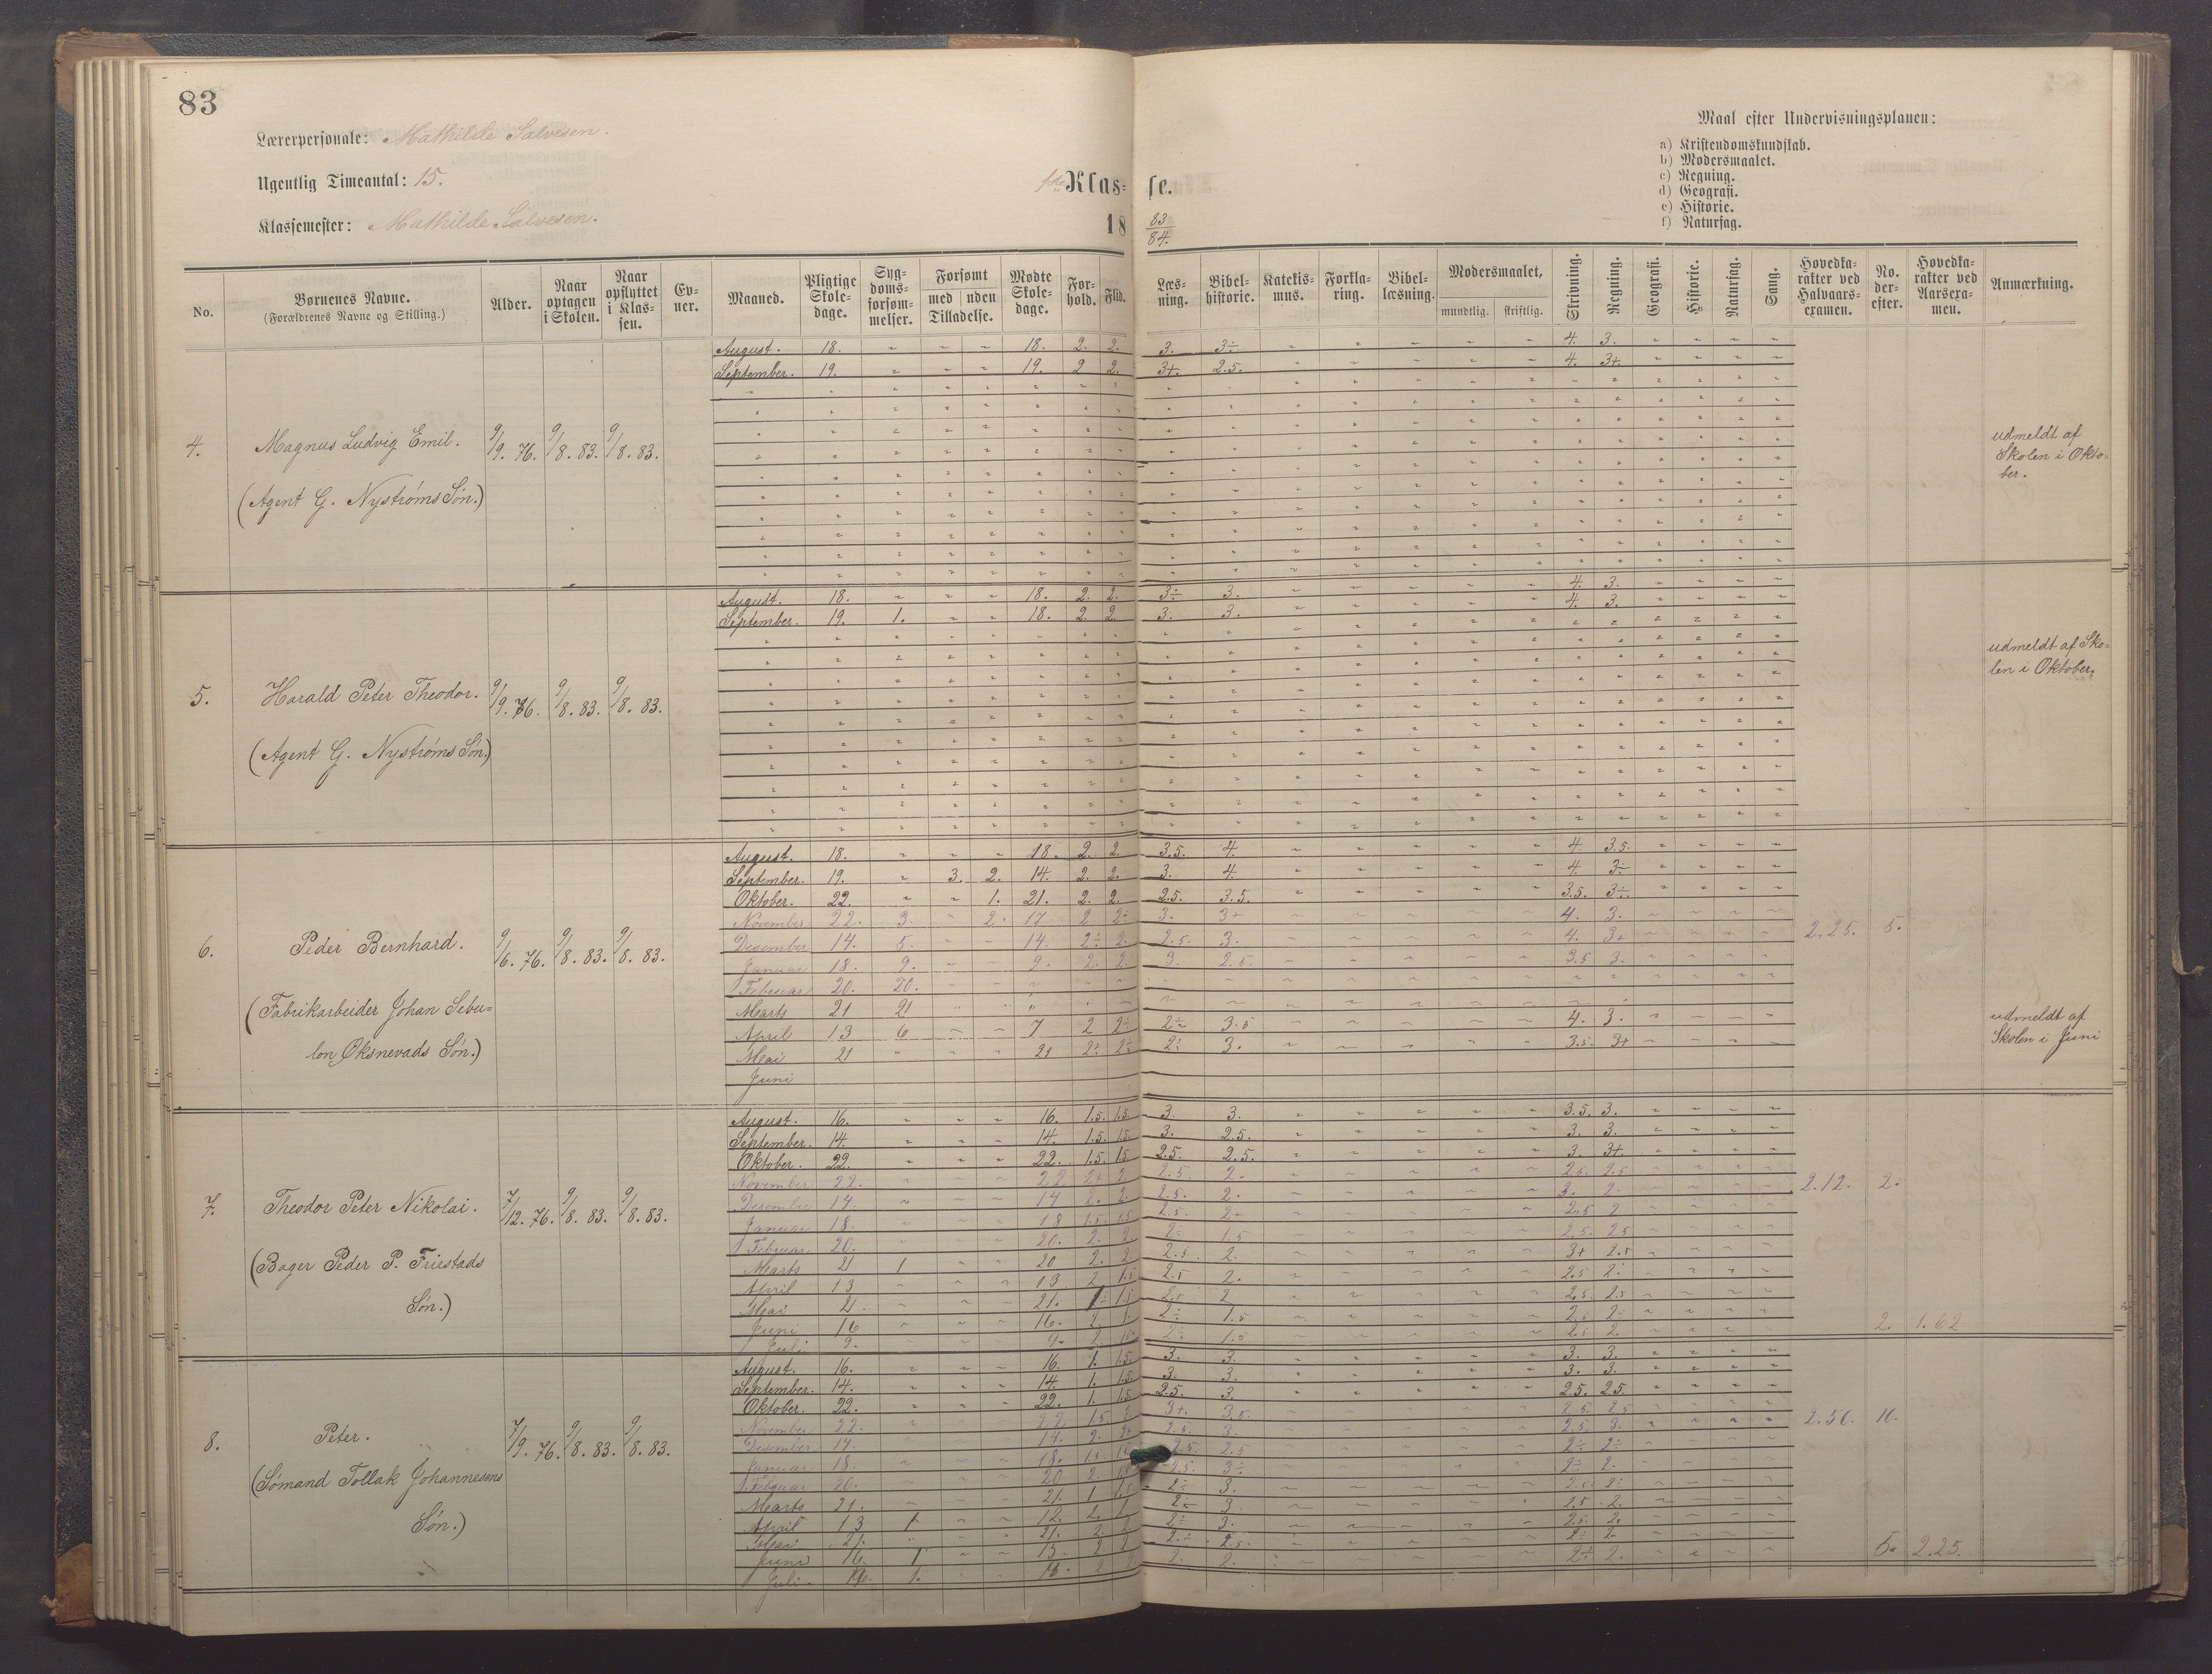 83
Lærerpersonale: Mathilde Salvesen.
Ugentlig Timeantal: 15.
Klassemester: Mathilde Salvesen.
1ste Klas= se.
18 83/84.
Maal efter Undervisningsplanen:
a) Kristendomskundskab.
b) Modersmaalet.
c) Regning.
d) Geografi.
e) Historie.
f) Naturfag.
No. Børnenes Navne. (Forældrenes Navne og Stilling.) Alder. Naar optagen i Skolen. Naar opflyttet i Klassen. Evner. Maaned. Pligtige Skoledage. Sygdomsforsømmelser. Forsømt med uden Tilladelse. Mødte Skoledage. Forhold. Flid. Læsning. Bibelhistorie. Katekismus. Forklaring. Bibellæsning. Modersmaalet, mundtlig. skriftlig. Skrivning. Regning. Geografi. Historie. Naturfag. Sang. Hovedkarakter ved Halvaarsexamen. No. derefter. Hovedkarakter ved Aarsexamen. Anmærkning.
4. Magnus Ludvig Emil. 9/9. 76. 9/8. 83. 9/8. 83.
(Agent G. Nystrøms Søn.)
August. 18. 18. 2. 2. 3. 3÷ 4. 3.
September. 19. 19. 2 2. 3+. 2.5. 4. 3+.
udmeldt af
Skolen i Okto-
ber.
5. Harald Peter Theodor. 9/9. 76. 9/8. 83. 9/8. 83.
(Agent G. Nystrøms Søn.)
August. 18. 18. 2. 2. 3÷ 3. 4. 3.
September. 19. 1. 18. 2. 2. 3. 3. 4. 3.
udmeldt af Sko-
len i Oktober.
6. Peder Bernhard. 9/6. 76. 9/8. 83. 9/8. 83.
(Fabrikarbeider Johan Sebu=
lon Øksnevads Søn.)
August. 18. 18. 2. 2. 3.5. 4. 4. 3.5.
September. 19. 3. 2. 14. 2. 2. 3. 4. 4. 3÷
Oktober. 22. 1. 21. 2. 2. 2.5. 3.5. 3.5. 3÷
November 22. 3. 2. 17 2 2÷ 3. 3+ 4. 3.
Desember 14. 5. 14. 2÷ 2. 2.5. 3. 4. 3+ 2.25. 5.
Januar 18. 9. 9. 2. 2. 3. 2.5. 3.5 3.
Februar 20. 20.
Marts 21 21
April 13 6 7 2 2÷ 2÷ 3.5 4. 3.
Mai 21 21 2÷ 2÷ 2÷ 3. 3.5. 3+
Juni
udmeldt af
Skolen i Juni
7. Theodor Peter Nikolai. 7/12. 76. 9/8. 83. 9/8. 83.
(Bager Peder P. Friestads
Søn.)
August. 16. 16. 1.5. 1.5. 3. 3. 3.5. 3.
September. 14. 14. 1.5. 1.5. 3. 2.5. 3. 3.
Oktober. 22. 22. 1.5. 1.5 2.5. 2.5. 3. 3+.
November 22. 22 2+ 2 2.5. 2. 2.5. 2.5
Desember 14. 14 2. 2. 2.5. 2. 3. 2. 2.12. 2.
Januar 18. 18 1.5. 1.5 2.5. 2+ 2.5 2
Februar 20. 20. 2. 2 2÷ 1.5 2.5. 2.5
Marts 21 1 20 2. 2. 2.5. 2. 3+ 2.5
April 13 13 2 1.5 2.5 2. 2.5 2.
Mai 21. 21. 2 2.5. 2.5
Juni 16 16. 2÷ 1.5 2.5 2÷
Juli 9. 9. 2 1.5 2÷ 1.5 2.5 2. 2. 1.62
8. Peter. 7/9. 76. 9/8. 83. 9/8. 83.
(Sømand Tollak Johannesens
Søn.)
August. 16. 16. 1. 1.5. 3. 3. 3. 3.
September. 14. 14. 1. 1.5 3. 3. 3. 3.
Oktober. 22. 22. 1. 1.5. 2.5. 3. 2.5. 2.5.
November 22. 22 1.5. 2 3+. 3.5. 2.5. 2.5
Desember 14. 14. 2. 2÷ 2.5. 3. 2.5. 3. 2.50. 10.
Januar 18. 18. 1.5 2.5. 2.5 2÷ 2÷
Februar 20. 20 2. 2.5. 3÷ 2÷ 2.
Marts 21. 21. 1 1.5 2÷ 3. 2.5. 2÷
April 13 1 12. 2. 2÷ 3 2.5 2.
Mai 21. 21. 2 2 2÷ 3. 2.5. 2.
Juni 16. 1 15 2 2 2.÷ 2.5. 2÷ 2
Juli 1. 2 2. 2. 2+ 2. 5. 2.25.